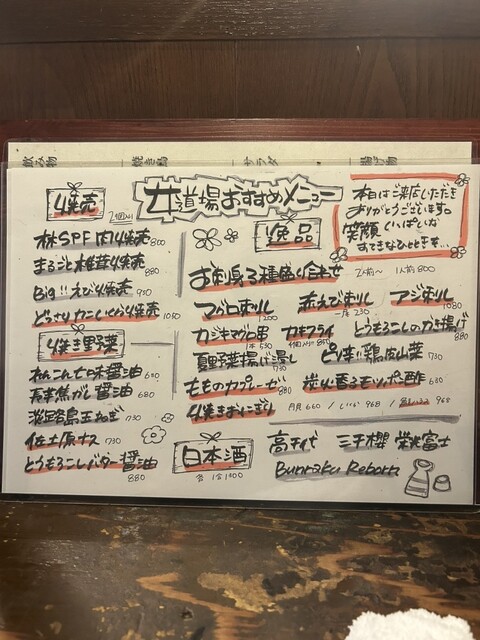 飲み物
焼き鳥
サラダ
揚げ物
井道場おすすめメニュー
本日はご来店いただき
ありがとうございます。
笑顔いっぱいな
すてきなひとときを…
焼売
2個入り
林SPF肉焼売 800
まるごと椎茸焼売 880
Big!!えび焼売 950
どっさりカニしゃり焼売 1080
焼き野菜
醤油 680
長芋焦がし醤油 680
淡路島玉ねぎ 730
佐土原ナス 730
とうもろこしバター醤油 880
逸品
お刺身3種盛り合わせ 2人前〜 1人前800
マグロ刺し 1200
赤えび刺し 一尾230
アジ刺し 1080
カジキマグロ串 1本530
カキフライ
とうもろこしのかき揚げ 880
夏野菜揚げ浸し 730
ピリ辛い鶏皮山菜 730
もものカプレーゼ 880
炭火香るモツポン酢 680
焼きおにぎり
月見660 / いくら968 / 968
日本酒
各1合1300
高千代 三千櫻 栄光冨士
Bunraku Reborn